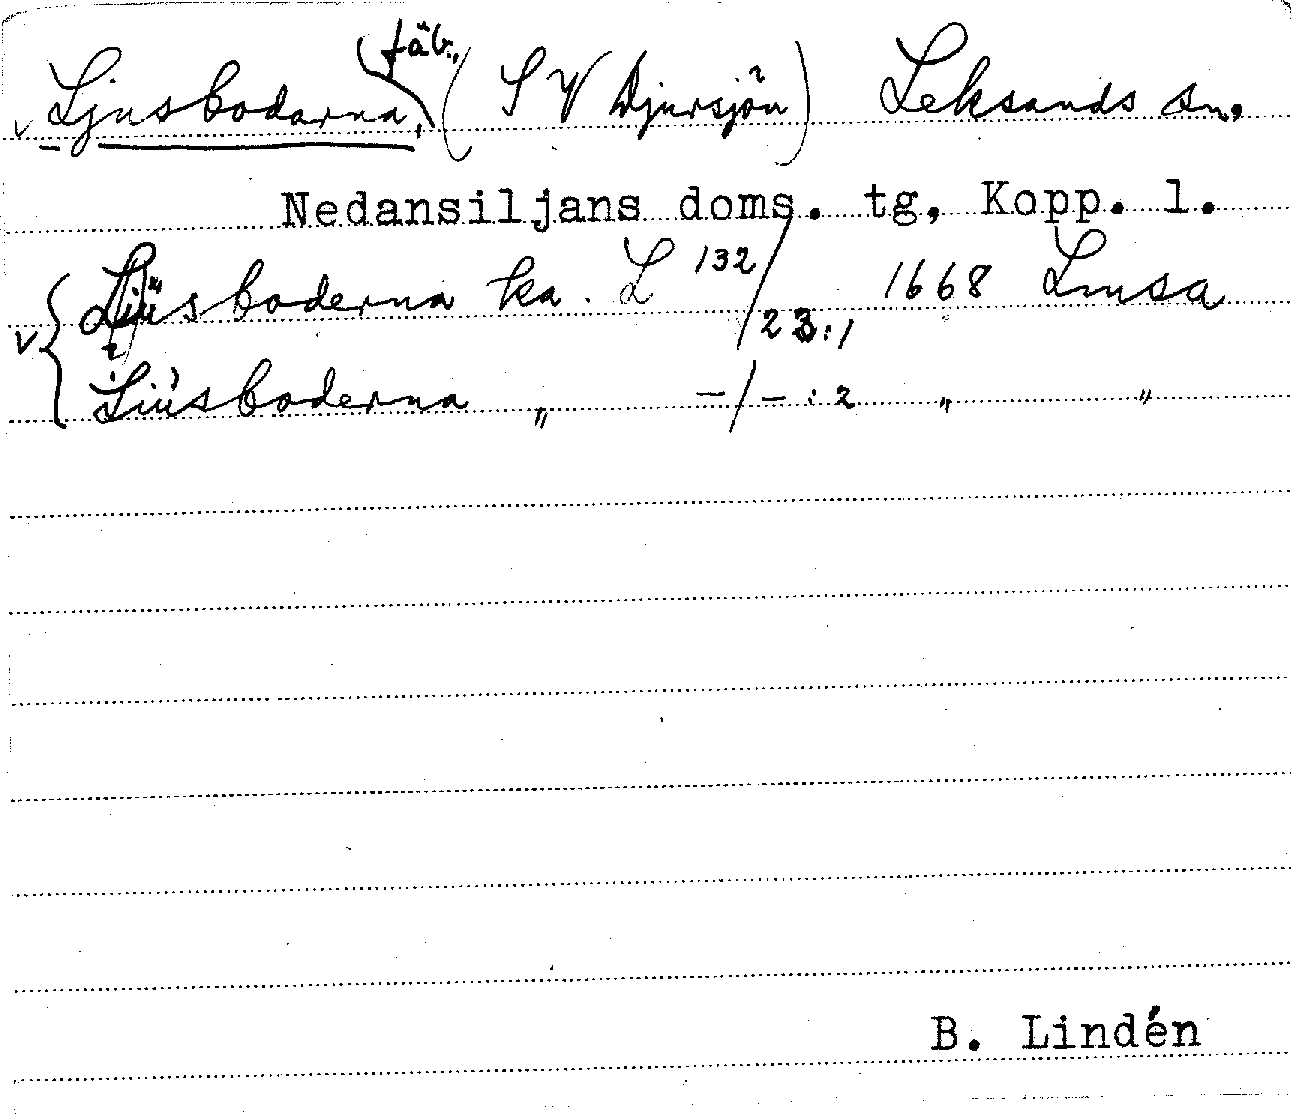 Ljusbodarna, fäb., (SV Djursjön) Leksands sn.
Nedansiljans doms. tg, Kopp. l.
Liüsboderna ka. L 132/23:1 1668 Lmsa
Liüsboderna " -/-:2 " "
B. Lindén